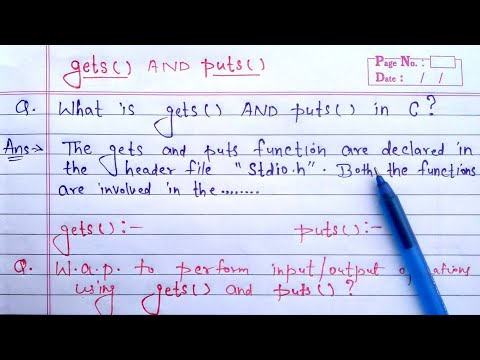 gets() AND puts()
Page No. :
Date : / /
Q. What is gets() AND puts() in C?
Ans:→ The gets and puts function are declared in
the header file "Stdio.h". Both the functions
are involved in the........
gets():- puts():-
Q. W.a.p. to perform input/output
using gets() and puts()?